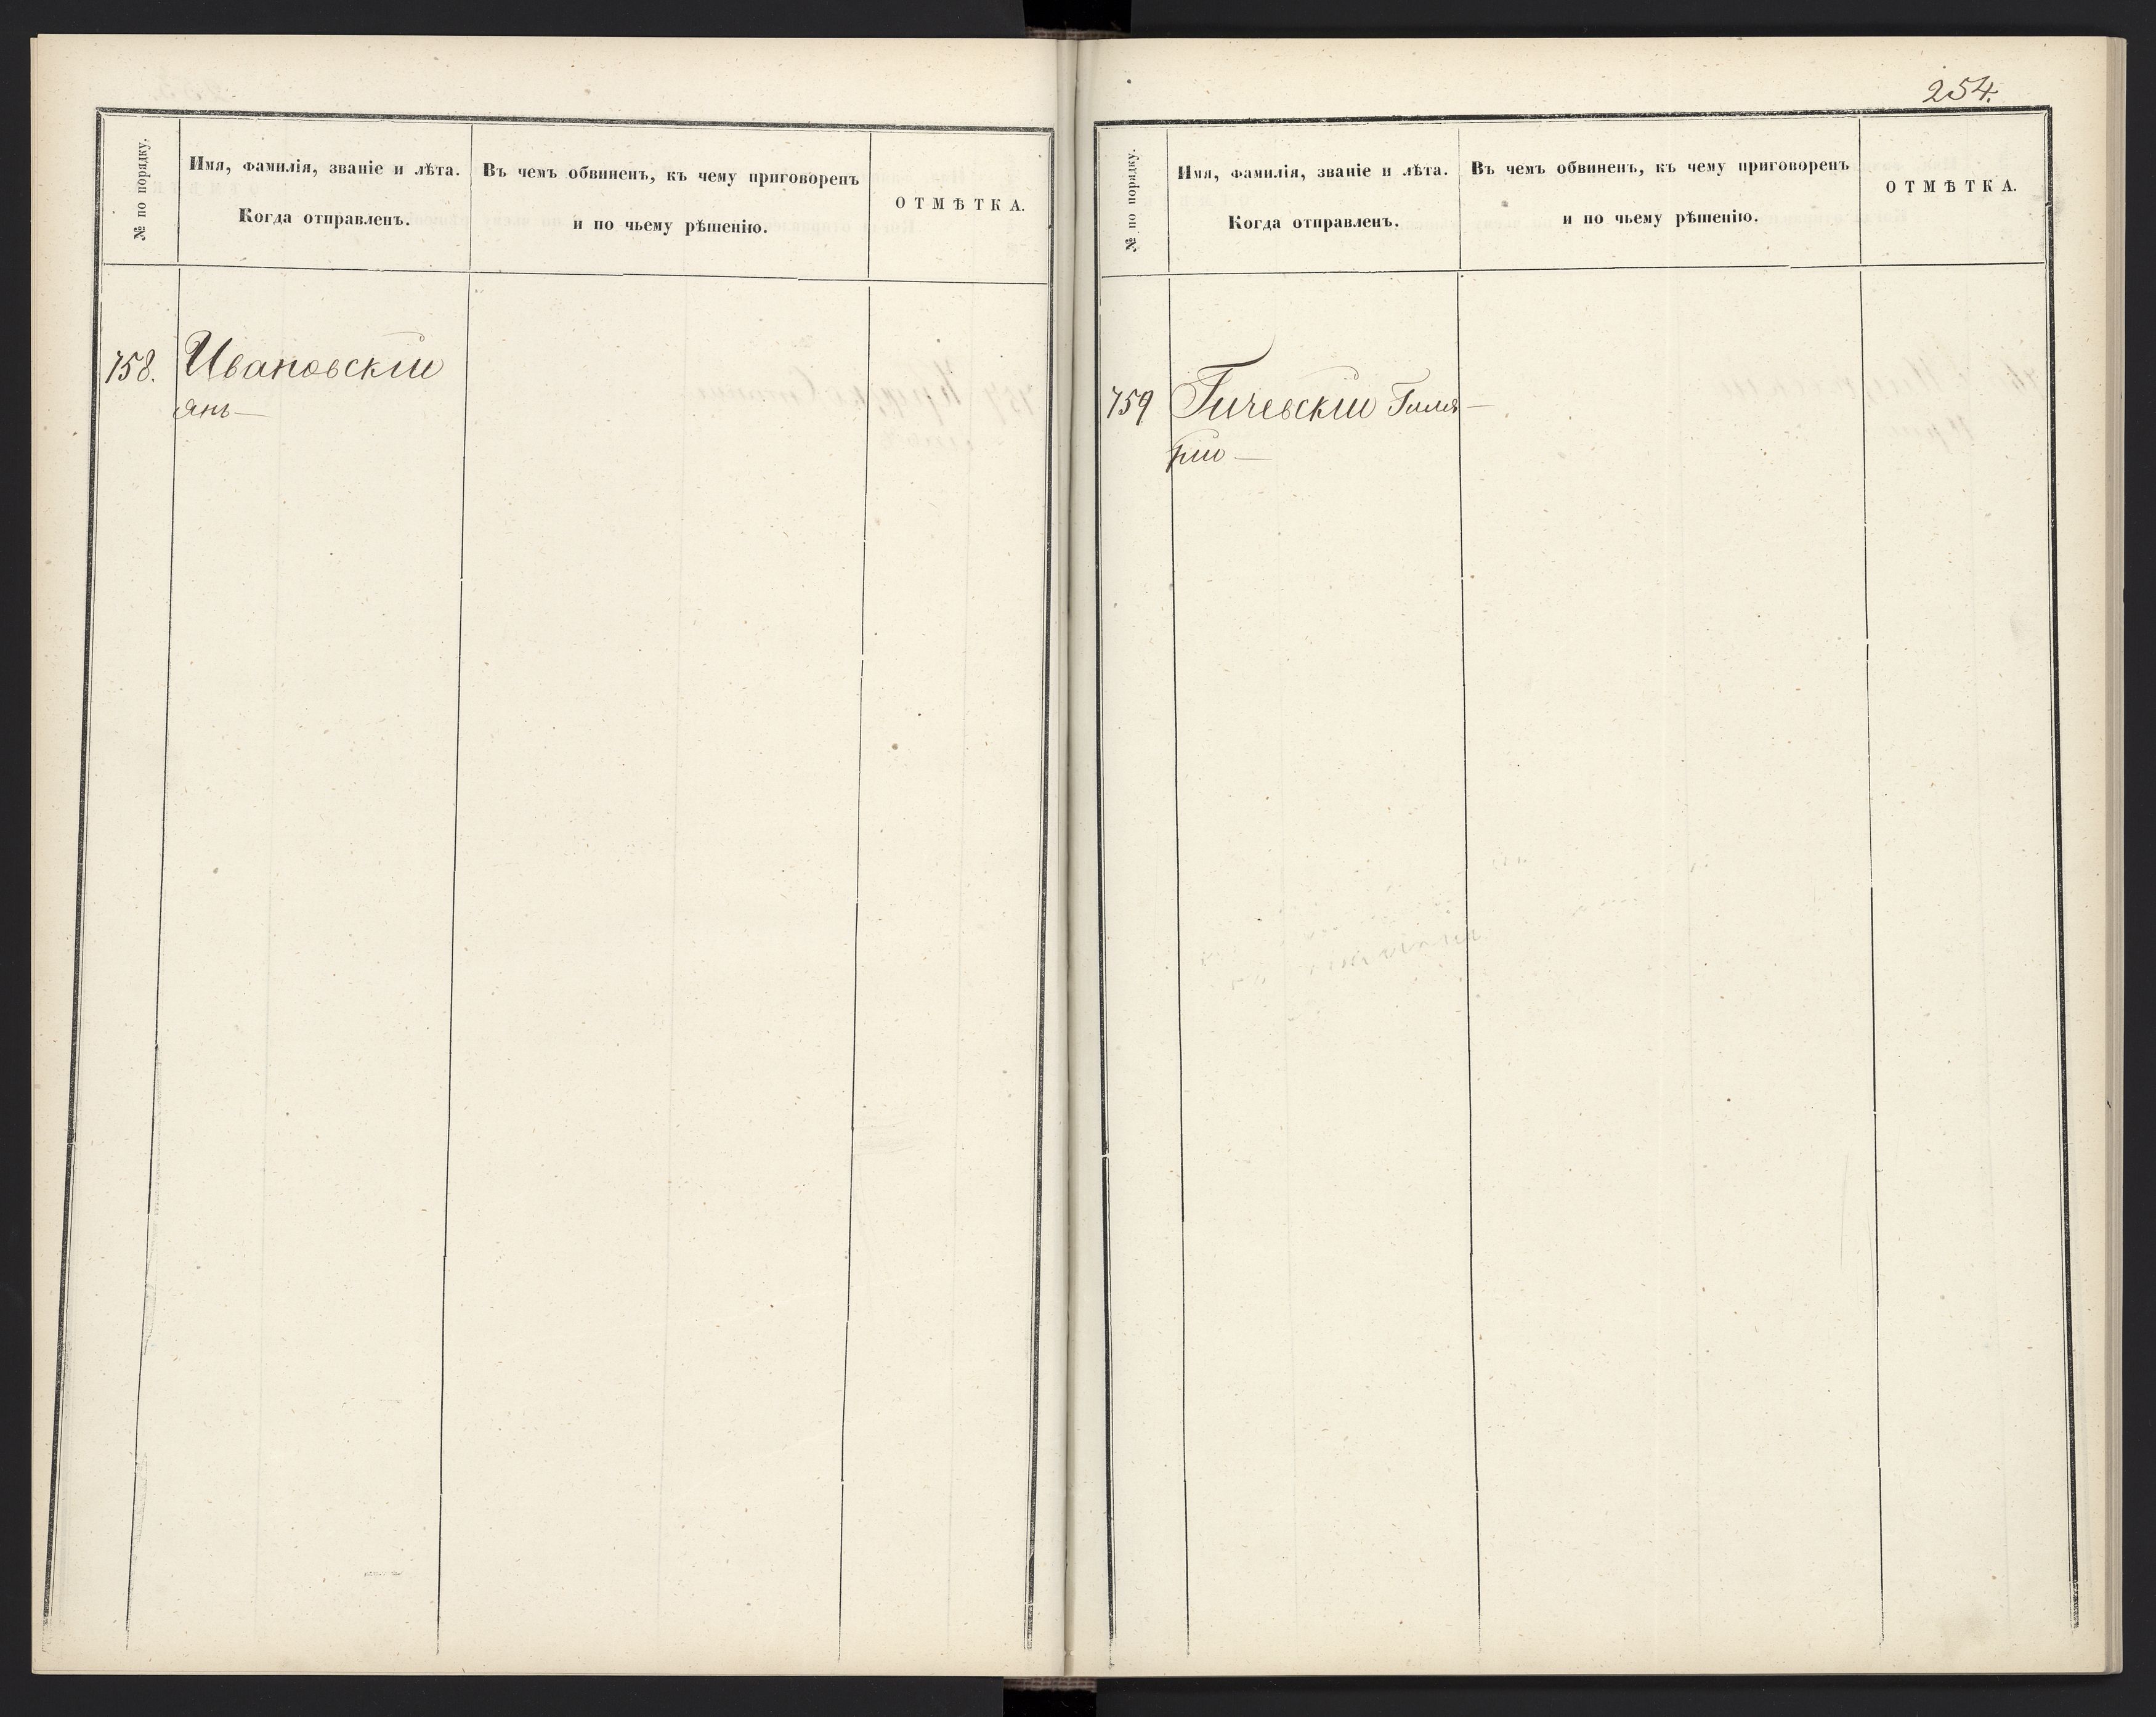 № по порядку.
Имя, фамилія, званіе и лѣта.
Когда отправленъ.
Въ чемъ обвиненъ, къ чему приговоренъ
и по чьему рѣшенію.
ОТМѢТКА.
758.
Ивановскій
Янъ —
254.
№ по порядку.
Имя, фамилія, званіе и лѣта.
Когда отправленъ.
Въ чемъ обвиненъ, къ чему приговоренъ
и по чьему рѣшенію.
ОТМѢТКА.
759
Гичевскій Гиля—
рій —